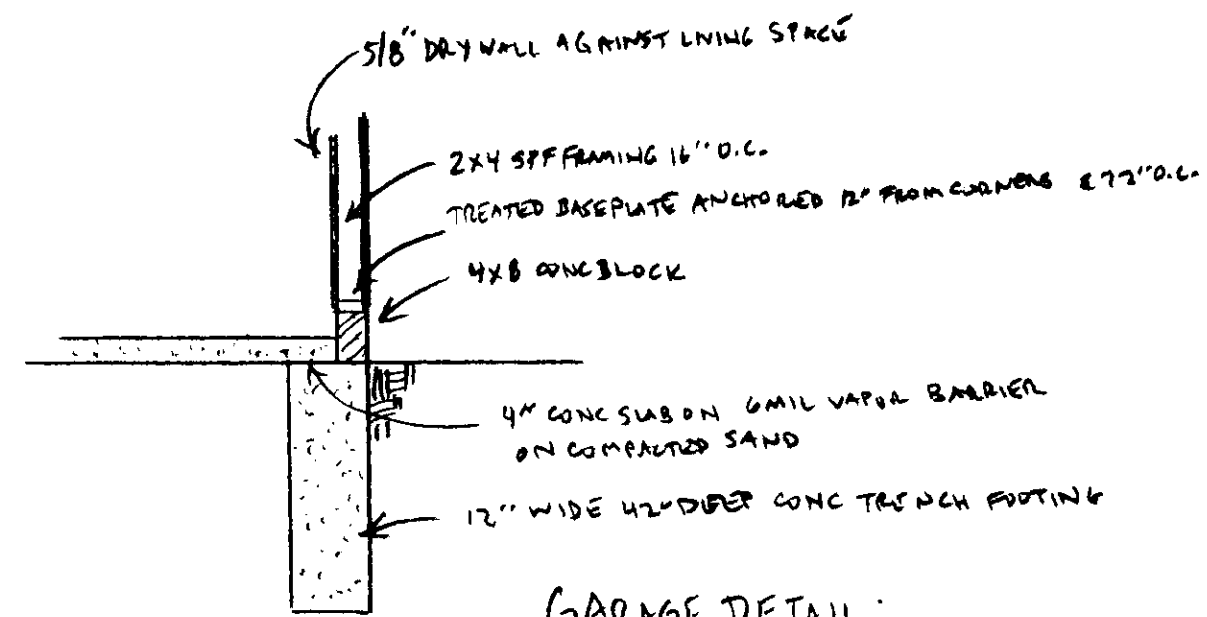 5/8" DRYWALL AGAINST LIVING SPACE
2X4 SPF FRAMING 16" O.C.
TREATED BASEPLATE ANCHORED 12" FROM CORNERS & 72" O.C.
4X8 CONC BLOCK
4" CONC SLAB ON 6MIL VAPOR BARRIER
ON COMPACTED SAND
12" WIDE 42" DEEP CONC TRENCH FOOTING
GARAGE DETAIL: